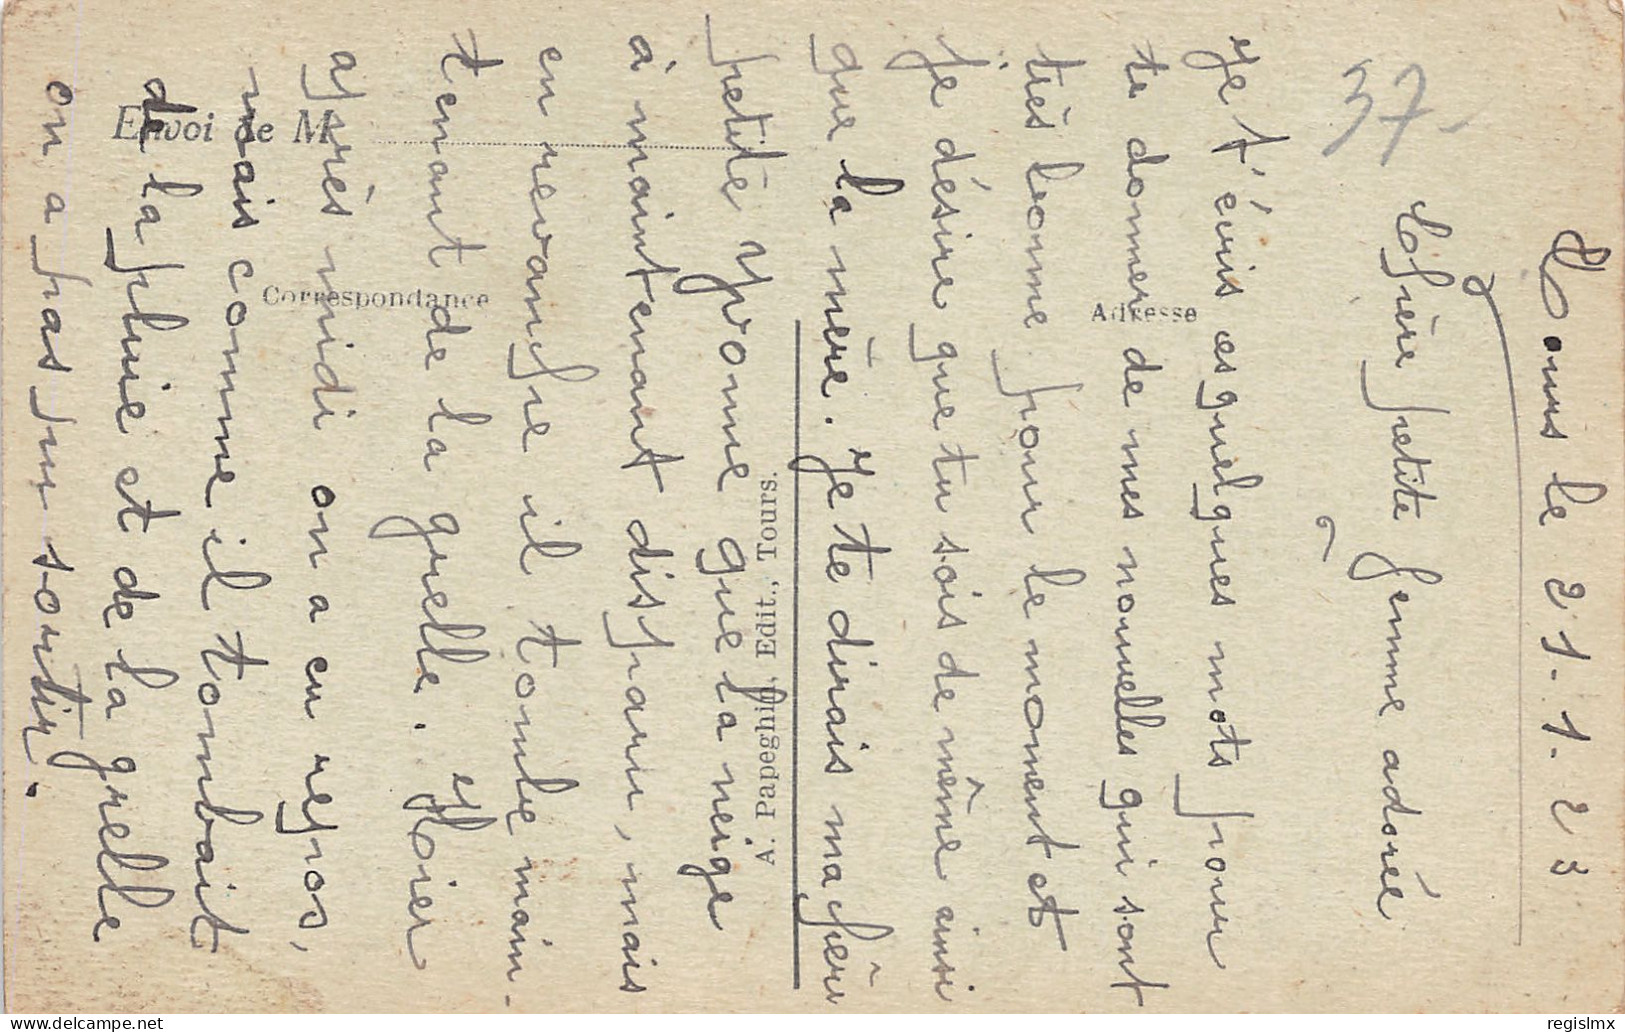 Tours le 21-1-23
37-
Chère petite femme adorée
Je t'écris ces quelques mots pour
te donner de mes nouvelles qui sont
très bonne pour le moment et
je désire que tu sois de même ainsi
que la mère. Je te dirais ma chère
petite Yvonne que la neige
à maintenant disparu, mais
en revanche il tombe main-
tenant de la grelle. Hier
après midi on a eu repos,
mais comme il tombait
de la pluie et de la grelle
on a pas pu sortir.
Envoi de M
Correspondance
Adresse
A. Papeghin, Edit., Tours.
www.delcampe.net
regislmx